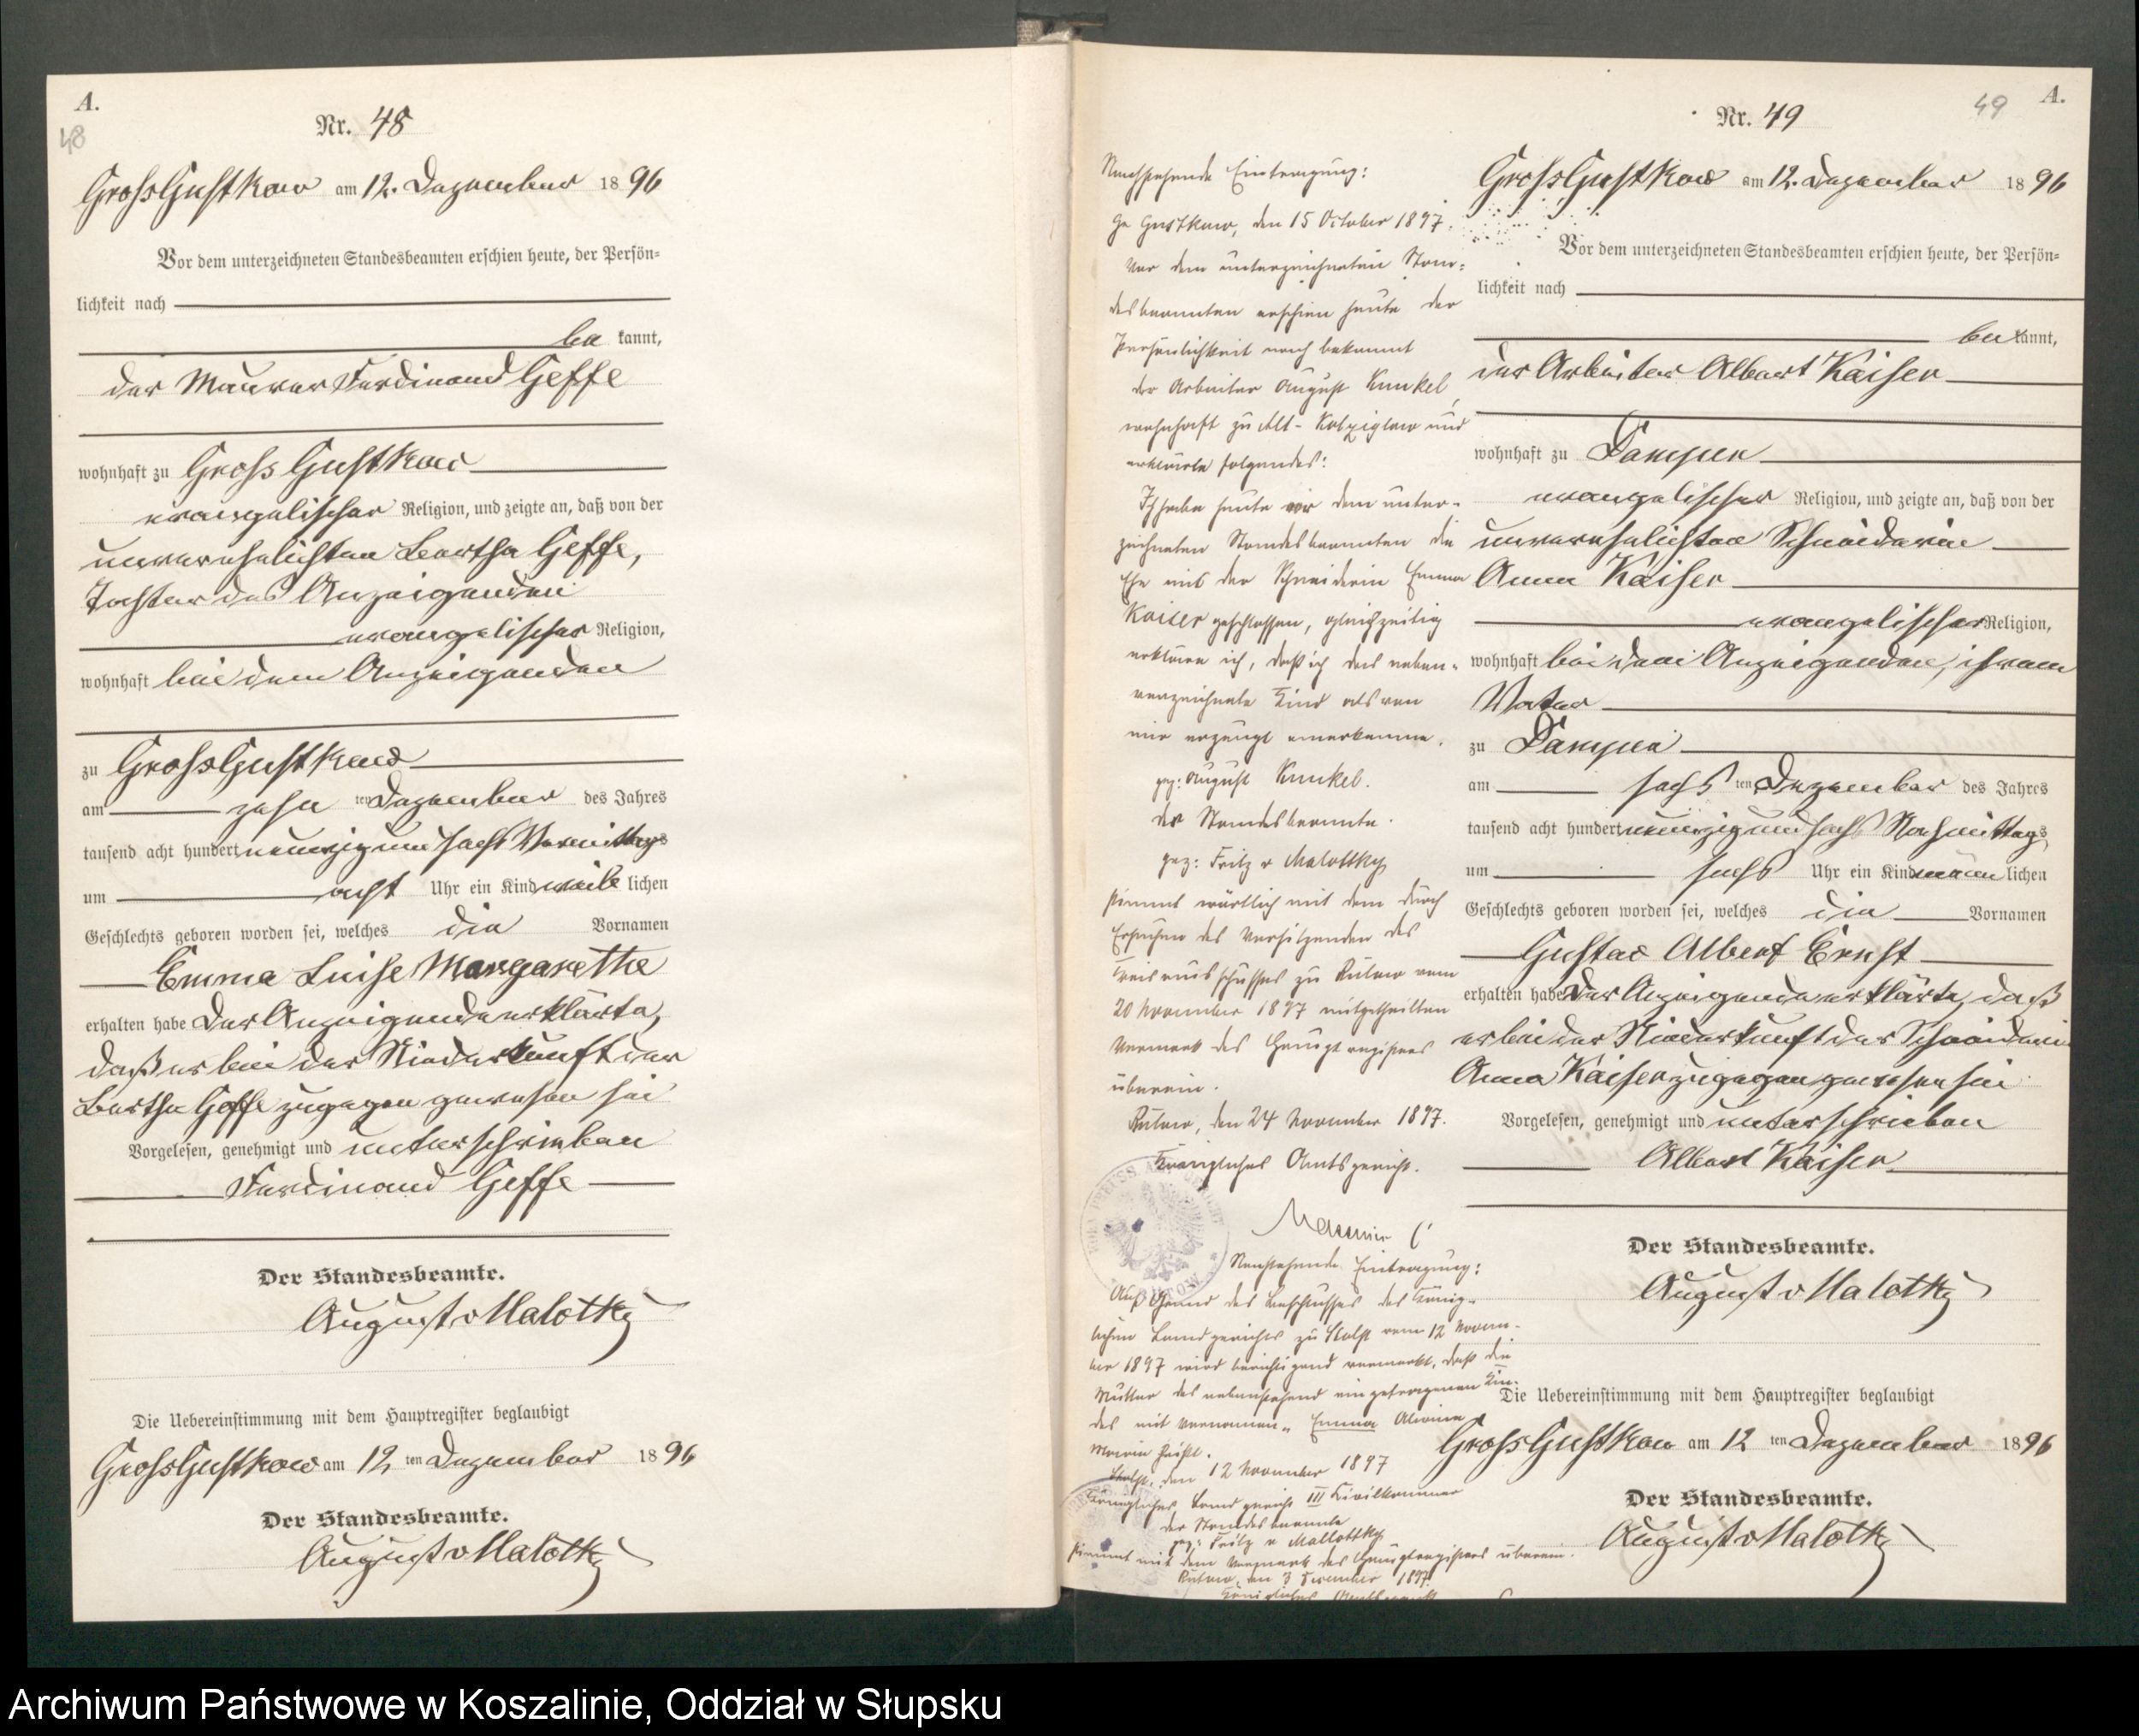 A.
48
Nr. 48
Gross Gustkow am 12. Dezember 1896
Vor dem unterzeichneten Standesbeamten erschien heute, der Persön=
lichkeit nach
be kannt,
der Maurer Ferdinand Geffe
wohnhaft zu Gross Gustkow
evangelischer Religion, und zeigte an, daß von der
unverehelichten Bertha Geffe,
Tochter des Anzeigenden
evangelischer Religion,
wohnhaft bei dem Anzeigenden
zu Gross Gustkow
am zehn ten Dezember des Jahres
tausend acht hundert neunzig und sechs Vormittags
um acht Uhr ein Kind weib lichen
Geschlechts geboren worden sei, welches die Vornamen
Emma Luise Margarethe
erhalten habe Der Anzeigende erklärte,
daß er bei der Niederkunft der
Bertha Geffe zugegen gewesen sei
Vorgelesen, genehmigt und unterschrieben
Ferdinand Geffe
Der Standesbeamte.
August v Malotky
Die Uebereinstimmung mit dem Hauptregister beglaubigt
Gross Gustkow am 12 ten Dezember 1896
Der Standesbeamte.
August v Malotky
Nachstehende Eintragung:
Gr Gustkow, den 15 October 1897.
Vor dem unterzeichneten Stan=
desbeamten erschien heute der
Persönlichkeit nach bekannt
der Arbeiter August Kunkel,
wohnhaft zu Alt-Kolziglow und
erklärte folgendes:
Ich habe heute vor dem unter-
zeichneten Standesbeamten die
Ehe mit der Schneiderin Emma
Kaiser geschlossen, gleichzeitig
erkläre ich, daß ich das neben-
verzeichnete Kind als von
mir erzeugt anerkenne.
gez: August Kunkel.
der Standesbeamte.
gez: Fritz v Malottky
stimmt wörtlich mit dem durch
Ersuchen des Vorsitzenden des
Kreisausschusses zu Bütow vom
20 November 1897 mitgetheilten
Vermerk des Hauptregisters
überein.
Bütow, den 24 November 1897.
Königliches Amtsgericht.
Nachstehende Eintragung:
Auf Grund des Beschlusses des König-
lichen Landgerichts zu Stolp vom 12 Novem-
ber 1897 wird berichtigend vermerkt, daß die
Mutter des nebenstehend eingetragenen Kin-
des mit Vornamen „Emma Alwine
Marie heißt.
Stolp, den 12 November 1897
Königliches Landgericht III Civilkammer
der Standesbeamte
gez: Fritz v Mallottky
stimmt mit dem Vermerk des Hauptregisters überein.
Bütow, den 3 Dezember 1897.
Königliches Amtsgericht
49
A.
Nr. 49
Gross Gustkow am 12. Dezember 1896
Vor dem unterzeichneten Standesbeamten erschien heute, der Persön=
lichkeit nach
be kannt,
der Arbeiter Albert Kaiser
wohnhaft zu Dampen
evangelischer Religion, und zeigte an, daß von der
unverehelichten Schneiderin
Anna Kaiser
evangelischer Religion,
wohnhaft bei dem Anzeigenden, ihrem
Vater
zu Dampen
am sechs ten Dezember des Jahres
tausend acht hundert neunzig und sechs Nachmittags
um sechs Uhr ein Kind männ lichen
Geschlechts geboren worden sei, welches die Vornamen
Gustav Albert Ernst
erhalten habe Der Anzeigende erklärte, daß
er bei der Niederkunft der Schneiderin
Anna Kaiser zugegen gewesen sei
Vorgelesen, genehmigt und unterschrieben
Albert Kaiser
Der Standesbeamte.
August v Malotky
Die Uebereinstimmung mit dem Hauptregister beglaubigt
Gross Gustkow am 12 ten Dezember 1896
Der Standesbeamte.
August v Malotky
Archiwum Państwowe w Koszalinie, Oddział w Słupsku